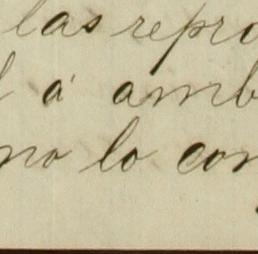 las repro
l á amb
no lo con